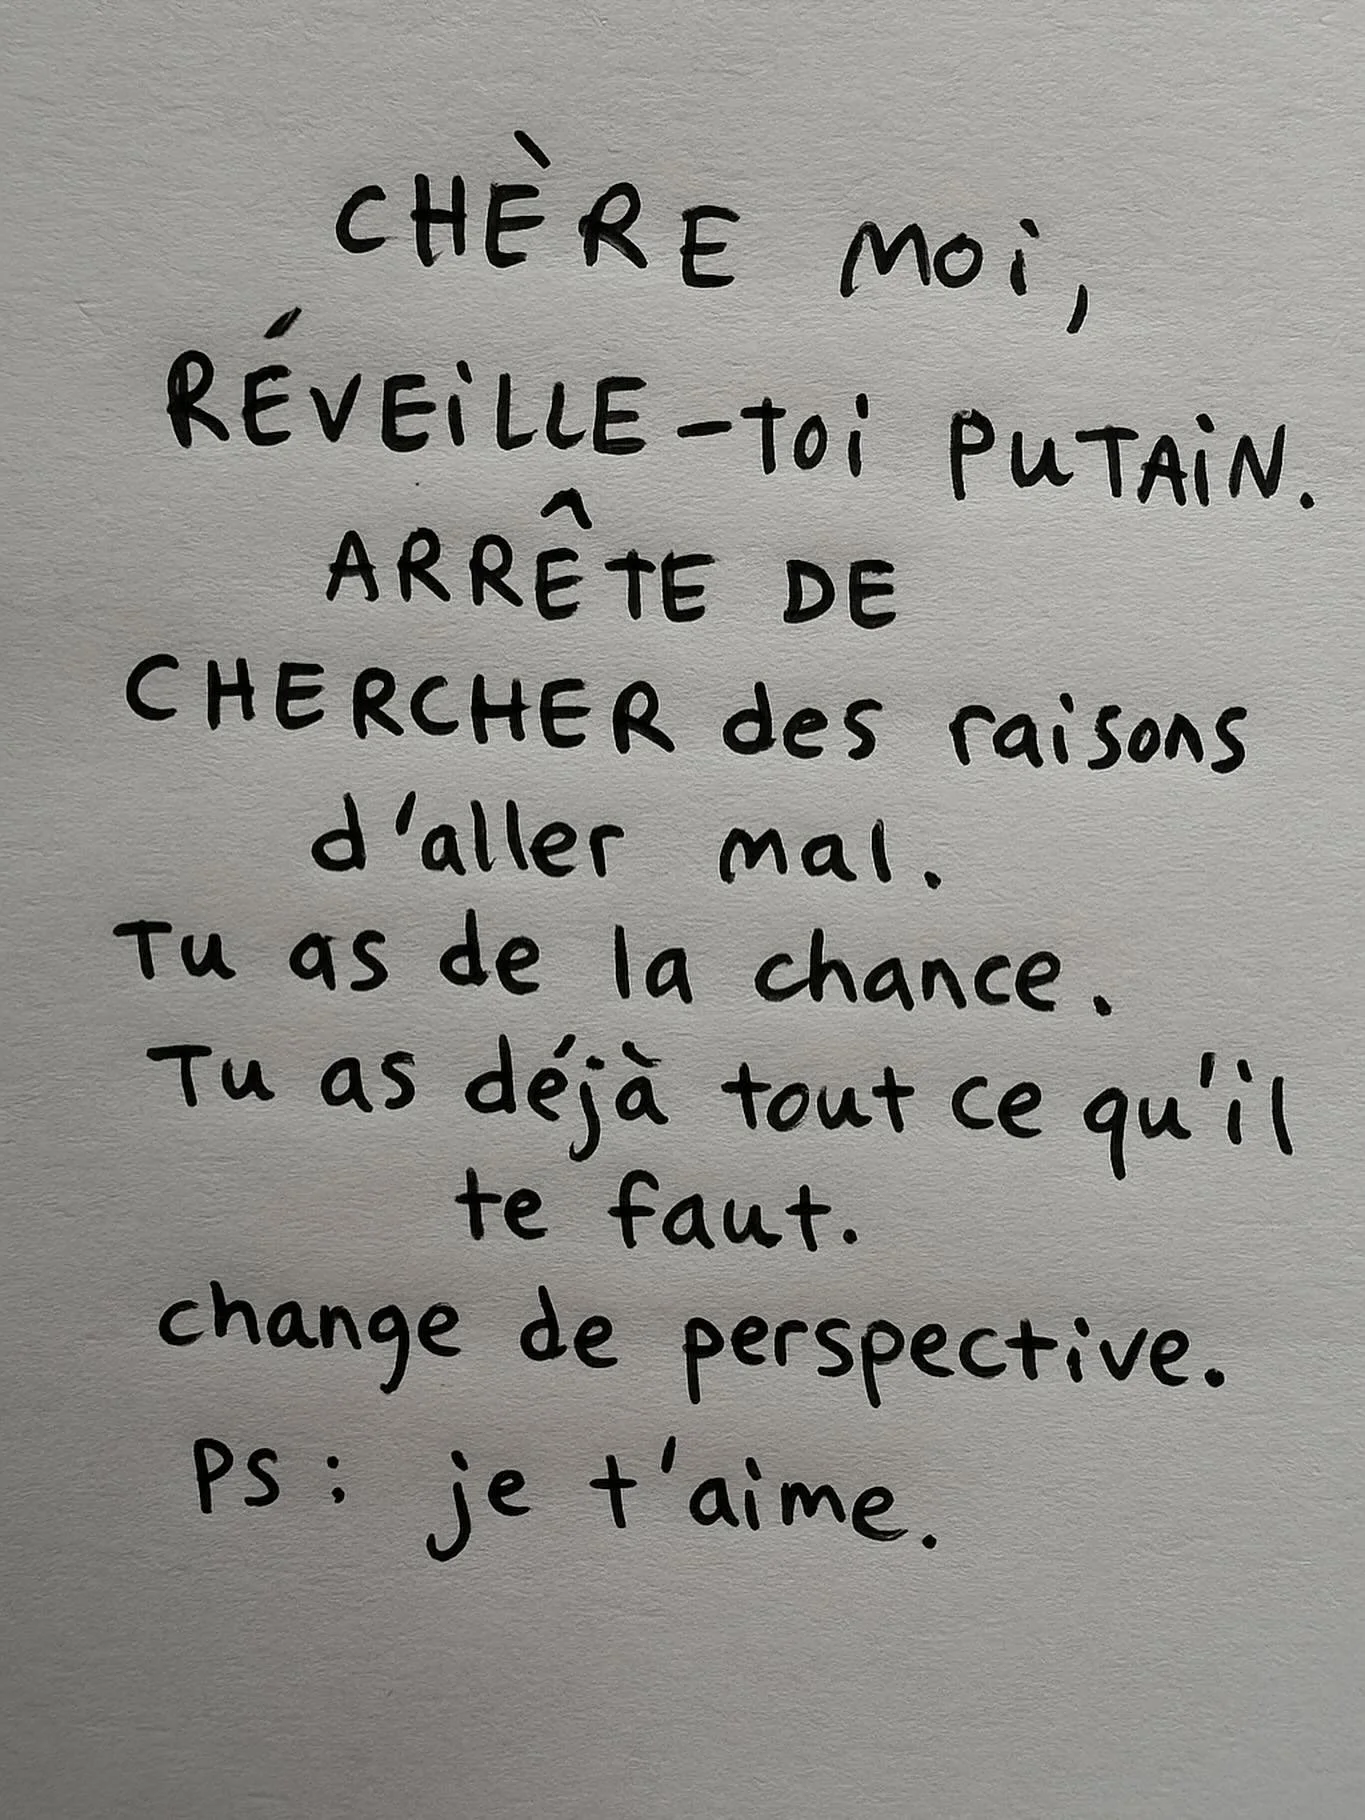 CHÈRE Moi,
RÉVEiLLE-toi PUTAiN.
ARRÊTE DE
CHERCHER des raisons
d'aller mal.
Tu as de la chance.
Tu as déjà tout ce qu'il
te faut.
change de perspective.
PS : je t'aime.